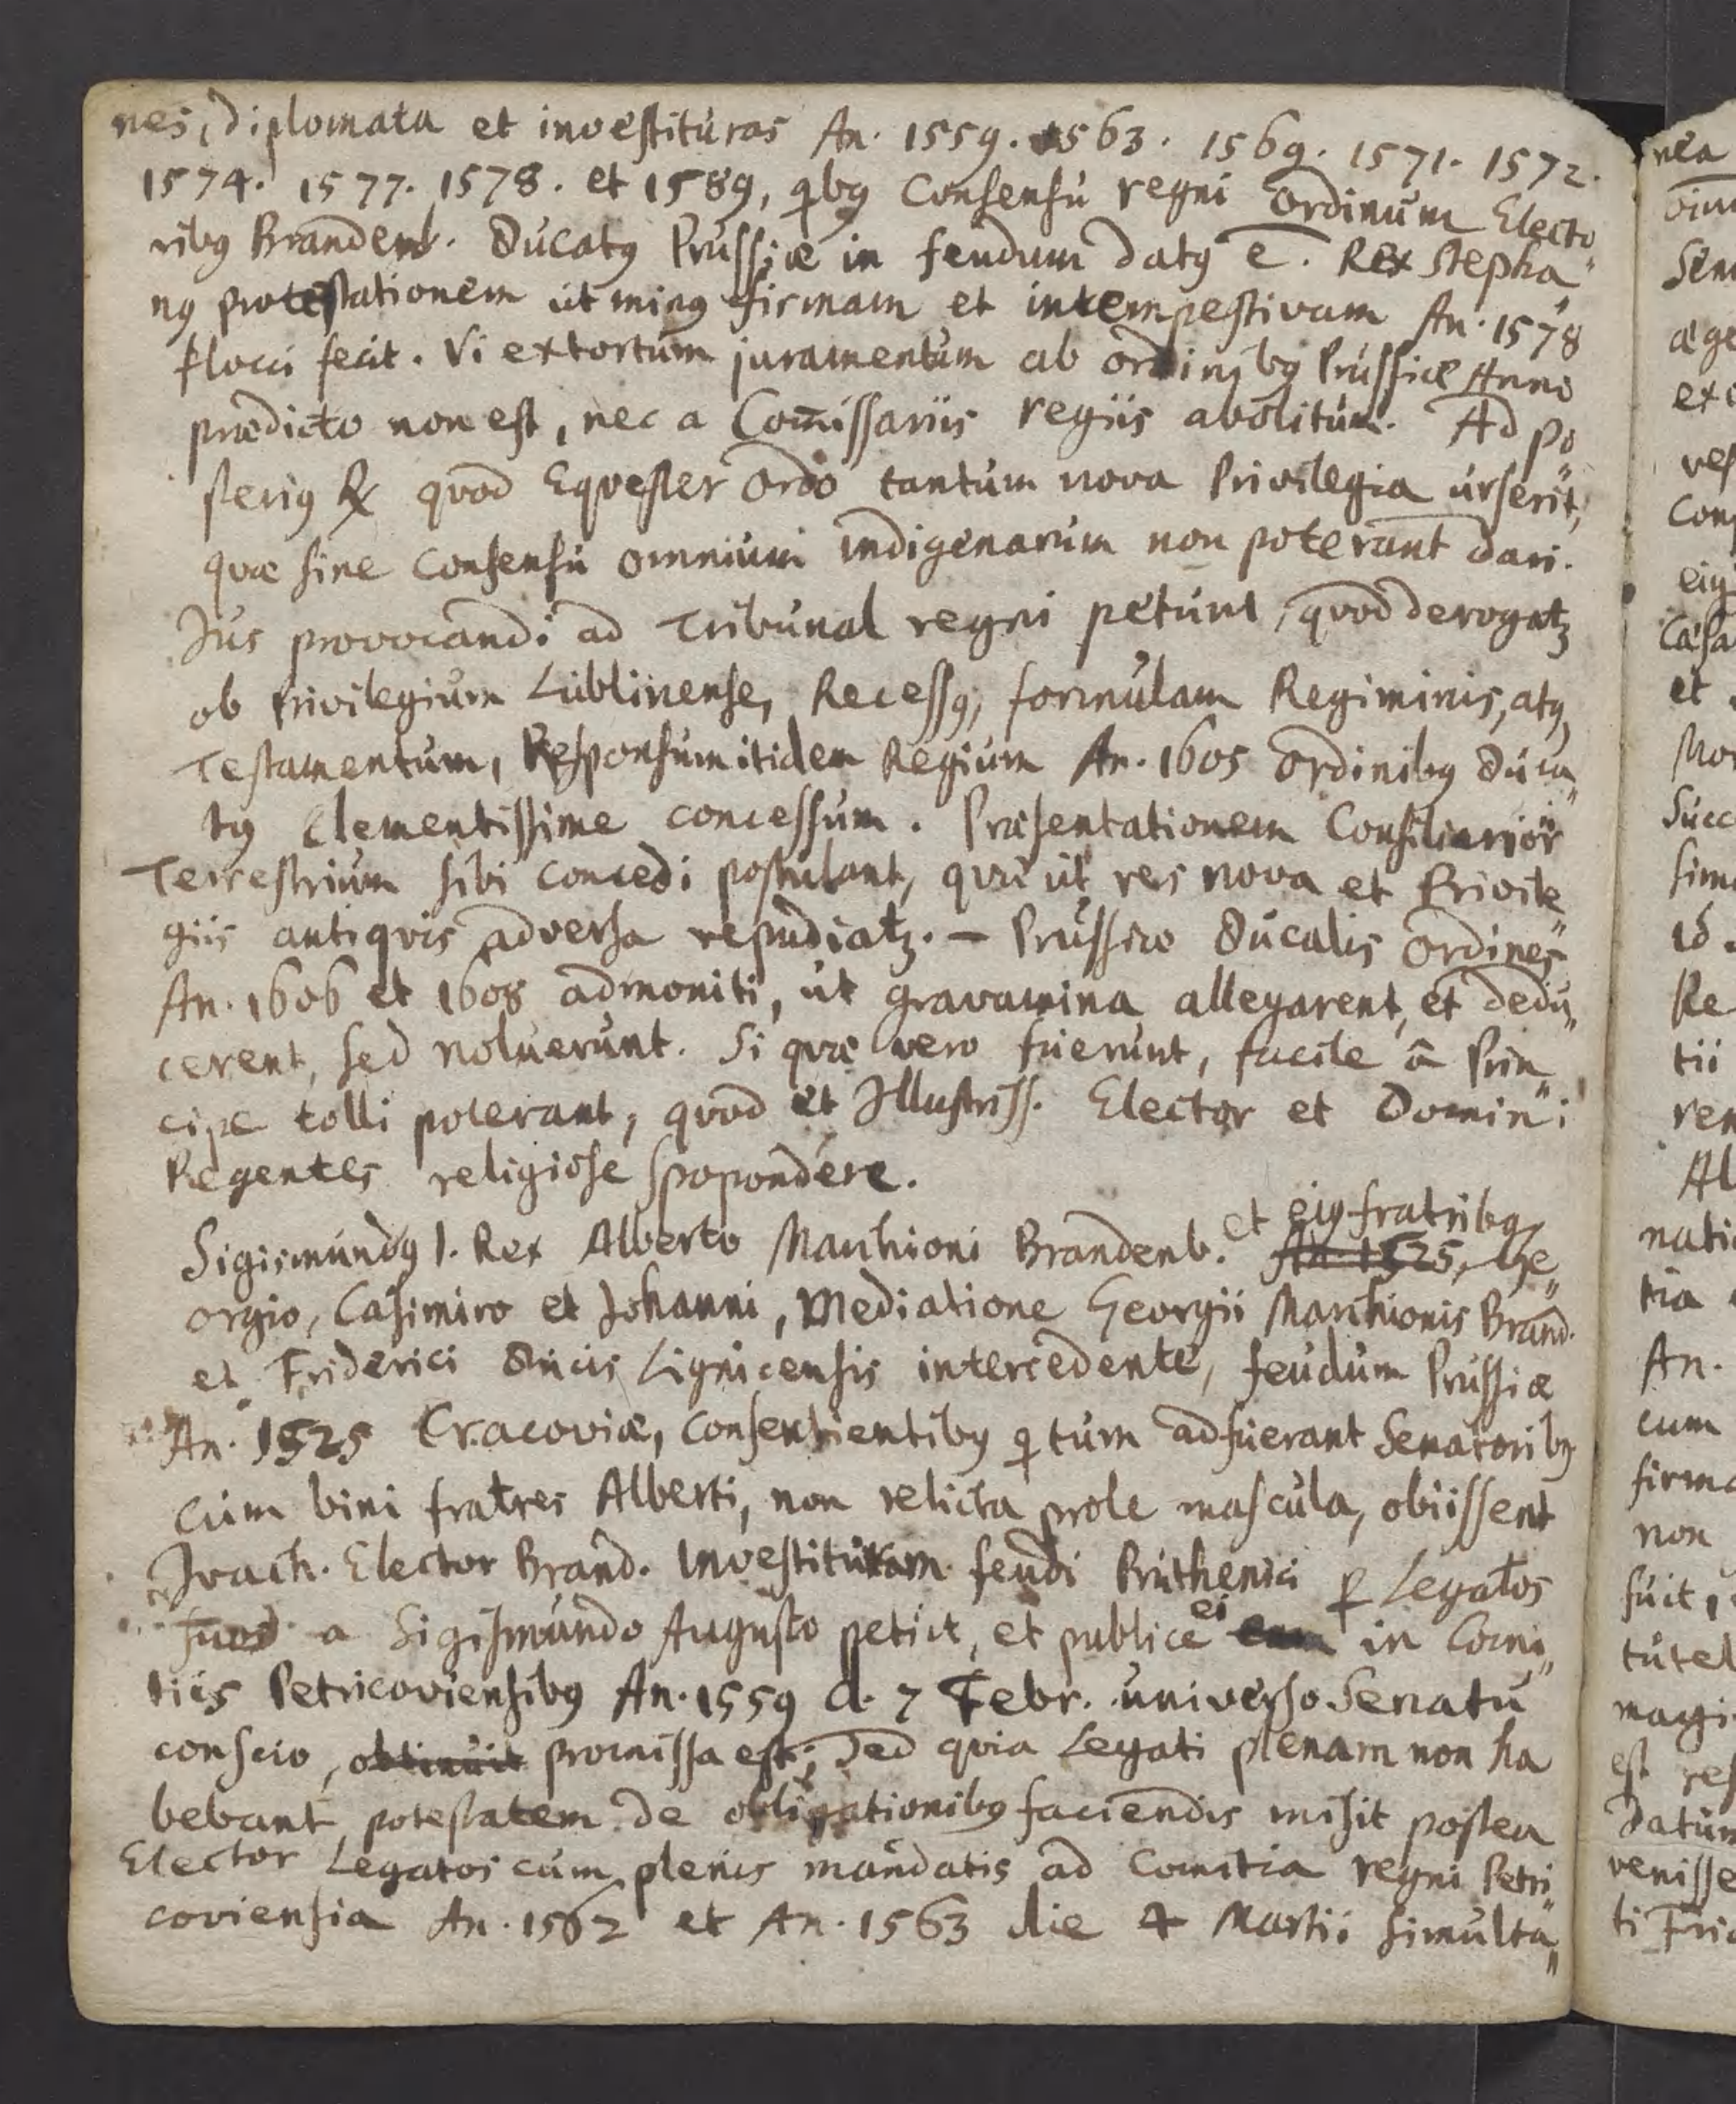 nes, diplomata et investituras An. 1559. 1563. 1569. 1571. 1572.
1574. 1577. 1578. et 1589, qbꝯ Consensu regni Ordinum Electo„
ribꝯ Brandenb. Ducatꝯ Prussiæ in feudum datꝯ ē. Rex Stepha„
nꝯ protestationem ut minꝯ firmam et intempestivam An. 1578
flocci fecit. Vi extortum juramentum ab ordinibꝯ Prussiæ Anno
prædicto non est, nec a Com̄issariis regiis abolitum. Ad po„
steriꝯ ℞ quod Equester Ordo tantum nova Privilegia urserit,
quæ sine consensu omnium indigenarum non poterant dari.
Jus provocandi ad Tribunal regni petunt, quod derogatꝫ
ob Privilegium Lublinense, Recessꝯ, formulam Regiminis, atqꝫ
Testamentum, Responsum itidem Regium An. 1605 Ordinibꝯ Duca„
tꝯ Clementissime concessum. Præsentationem Consiliarior̄
Terrestrium sibi concedi postulant, quæ ut res nova et Privile„
giis antiqvis adversa repudiatꝫ. — Prussico Ducalis Ordines
An. 1606 et 1608 admoniti, ut gravamina allegarent, et dedu„
cerent, sed noluerunt. Si quæ vero fuerunt, facile â Prin„
cipe tolli poterant, quod et Illustriss. Elector et Domini
Regentes religiose spopondére.
et eiꝯ fratribꝯ
Sigismundꝯ I. Rex Alberto Marchioni Brandenb. An. 1525, Ge„
orgio, Casimiro et Johanni, Mediatione Georgii Marchionis Brand.
et Friderici Ducis Lignicensis intercedente, feudum Prussiæ
An. 1525 Cracoviæ, consentientibꝯ q tum adfuerant Senatoribꝯ
Cum bini fratres Alberti, non relicta prole mascula, obiissent
Joach. Elector Brand. Investituram feudi Pruthenici ꝑ Legatos
suos a Sigismundo Augusto petiit, et publice ei eam in Comi„
tiis Petricoviensibꝯ An. 1559 d. 7 Febr. universo Senatu
conscio, obtinuit promissa est; Sed quia Legati plenam non ha
bebant potestatem de obligationibꝯ faciendis misit postea
Elector Legatos cum plenis mandatis ad Comitia regni Petri„
coviensia An. 1562 et An. 1563 die 4 Martii simulta„